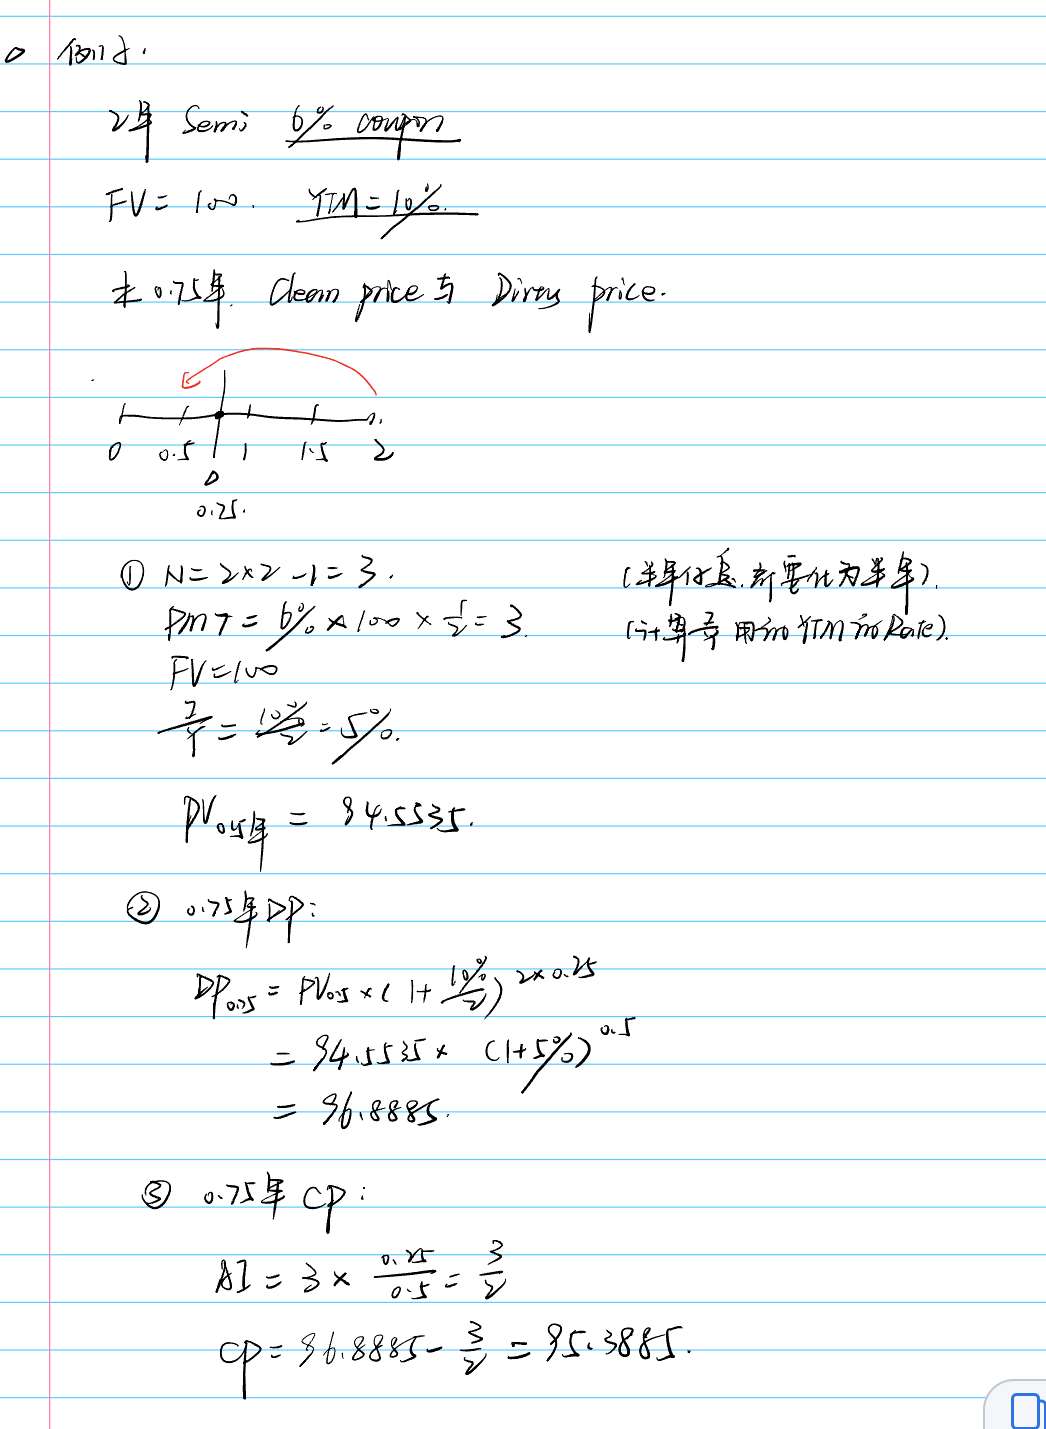 例子.
2年 Semi 6% coupon
FV = 100. YTM = 10%.
求 0.75年. Clean price 与 Dirty price.
0 0.5 1 1.5 2
0.25.
① N = 2×2 -1 = 3. (半年付息,都要化为半年).
PMT = 6% × 100 × 1/2 = 3. (计算器用的YTM的Rate).
FV = 100
I/Y = 10%/2 = 5%.
PV0.5年 = 94.5535.
② 0.75年DP:
DP0.75 = PV0.5 × (1+ 10%/2)^2×0.25
= 94.5535 × (1+5%)^0.5
= 96.8885.
③ 0.75年 CP:
AI = 3 × 0.25/0.5 = 3/2
CP = 96.8885 - 3/2 = 95.3885.